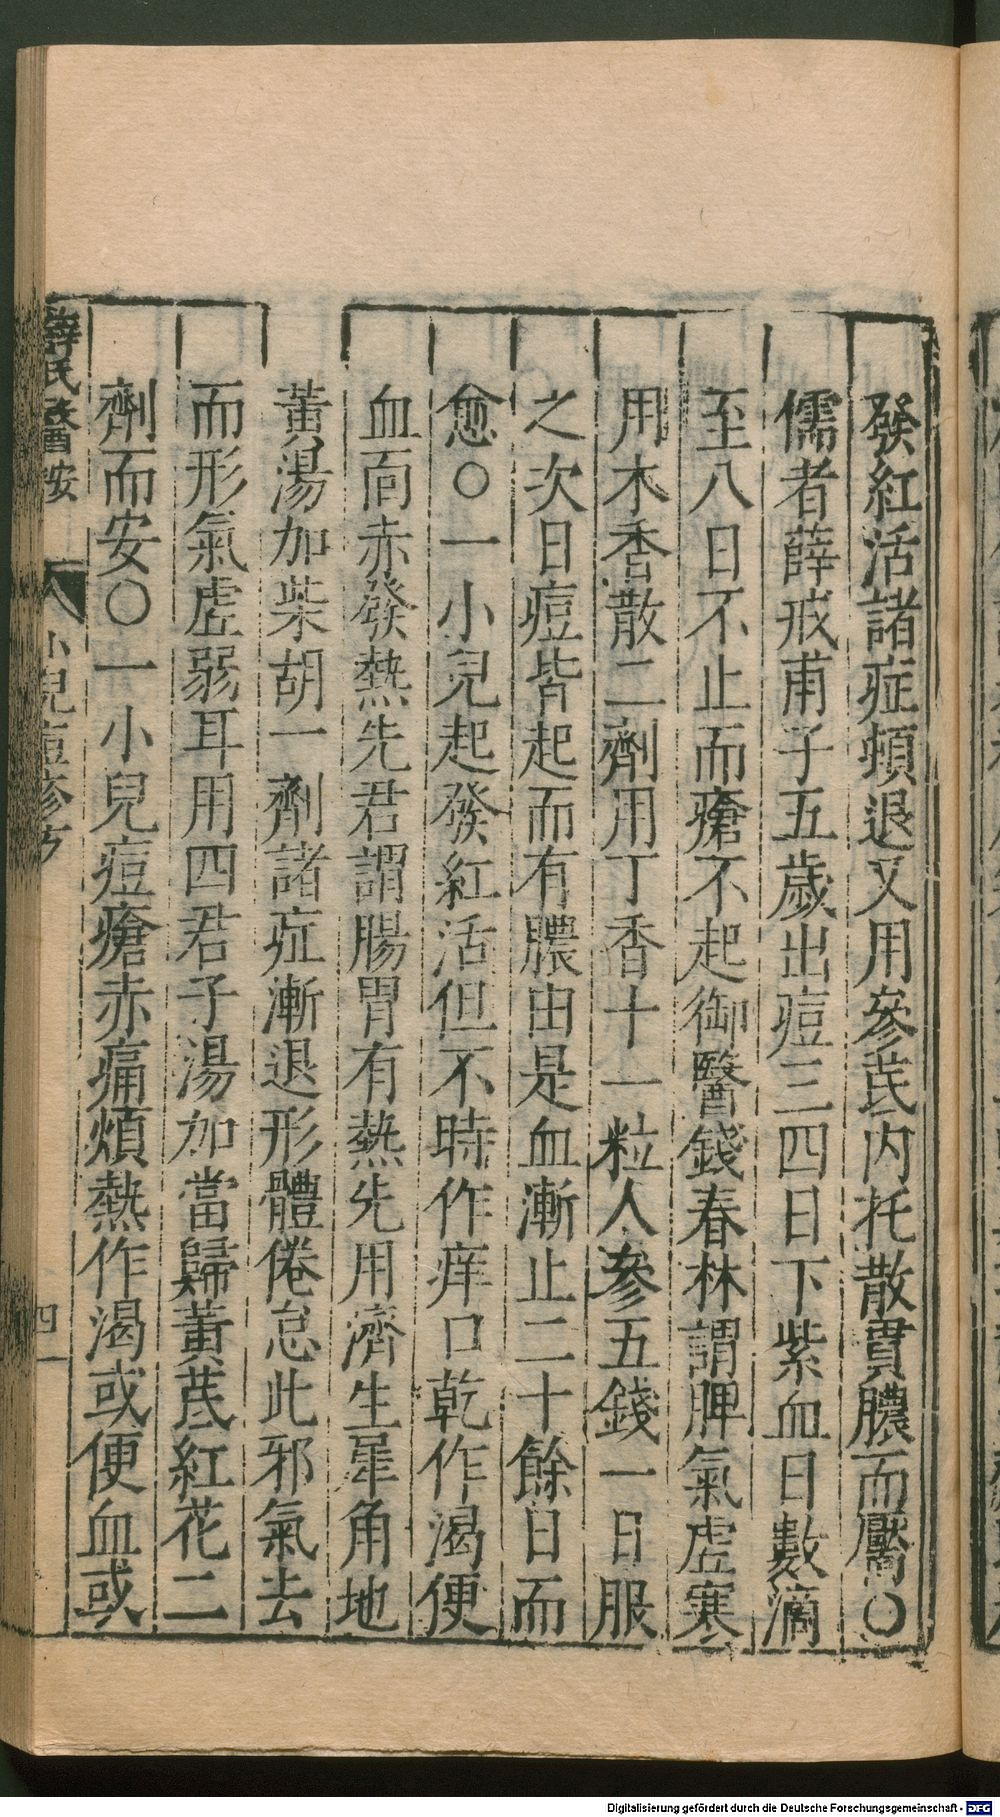 發紅活諸症頓退又用參芪内托散貫膿而靨○
儒者薛戒甫子五歲出痘三四日下紫血日數滴
至八日不止而瘡不起御醫錢春林謂脾氣虛寒
用木香散二劑用丁香十一粒人參五錢一日服
之次日痘皆起而有膿由是血漸止二十餘日而
愈○一小兒起發紅活但不時作痒口乾作渴便
血面赤發熱先君謂腸胃有熱先用濟生犀角地
黃湯加柴胡一劑諸症漸退形體倦怠此邪氣去
而形氣虛弱耳用四君子湯加當歸黃芪紅花二
劑而安○一小兒痘瘡赤痛煩熱作渴或便血或
薛氏醫按 小兒痘疹方 四
Digitalisierung gefördert durch die Deutsche Forschungsgemeinschaft - DFG